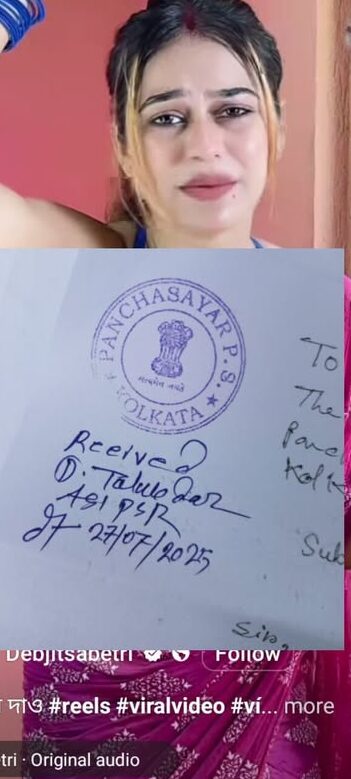 PANCHASAYAR P.S.
सत्यमेव जयते
★ KOLKATA ★
Received
D. Talukdar
ASI PSR
dt 27/07/2025
To
The
Panc
Kolk
Sub
Sir,
Debjitsabetri
Follow
দাও #reels #viralvideo #ví... more
etri · Original audio